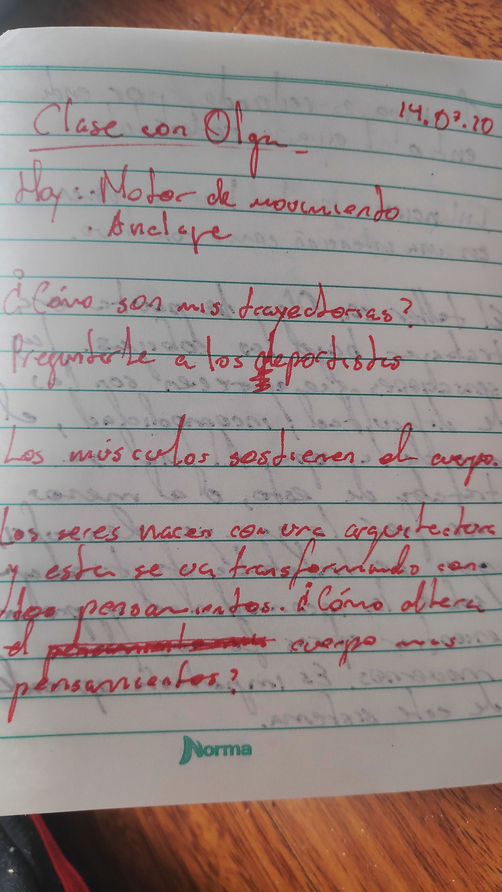 14.07.20
Clase con Olga
Hoy: · Motor de movimiento
· Anclaje
¿Cómo son mis trayectorias?
Preguntarle a los deportistas
Los músculos sostienen el cuerpo.
Los seres nacen con una arquitectura
y esta se va transformando con
pensamientos. ¿Cómo altera
el cuerpo mis
pensamientos?
Norma